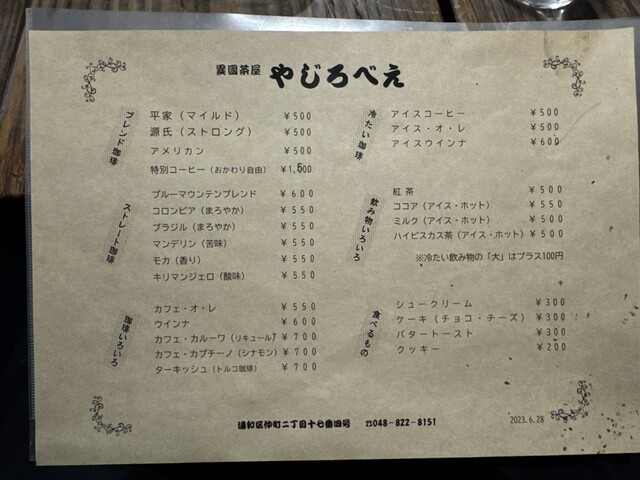 異國茶屋 やじろべえ
ブレンド珈琲
平家（マイルド） ¥500
源氏（ストロング） ¥500
アメリカン ¥500
特別コーヒー（おかわり自由） ¥1,500
ストレート珈琲
ブルーマウンテンブレンド ¥600
コロンビア（まろやか） ¥550
ブラジル（まろやか） ¥550
マンデリン（苦味） ¥550
モカ（香り） ¥550
キリマンジェロ（酸味） ¥550
珈琲いろいろ
カフェ・オ・レ ¥550
ウインナ ¥600
カフェ・カルーワ（リキュール） ¥700
カフェ・カプチーノ（シナモン） ¥700
ターキッシュ（トルコ珈琲） ¥700
冷たい珈琲
アイスコーヒー ¥500
アイス・オ・レ ¥500
アイスウインナ ¥600
飲み物いろいろ
紅茶 ¥500
ココア（アイス・ホット） ¥550
ミルク（アイス・ホット） ¥500
ハイビスカス茶（アイス・ホット） ¥500
※冷たい飲み物の「大」はプラス100円
食べるもの
シュークリーム ¥300
ケーキ（チョコ・チーズ） ¥300
バタートースト ¥300
クッキー ¥200
浦和区仲町二丁目十七番四号 ☎048-822-8151
2023.6.28